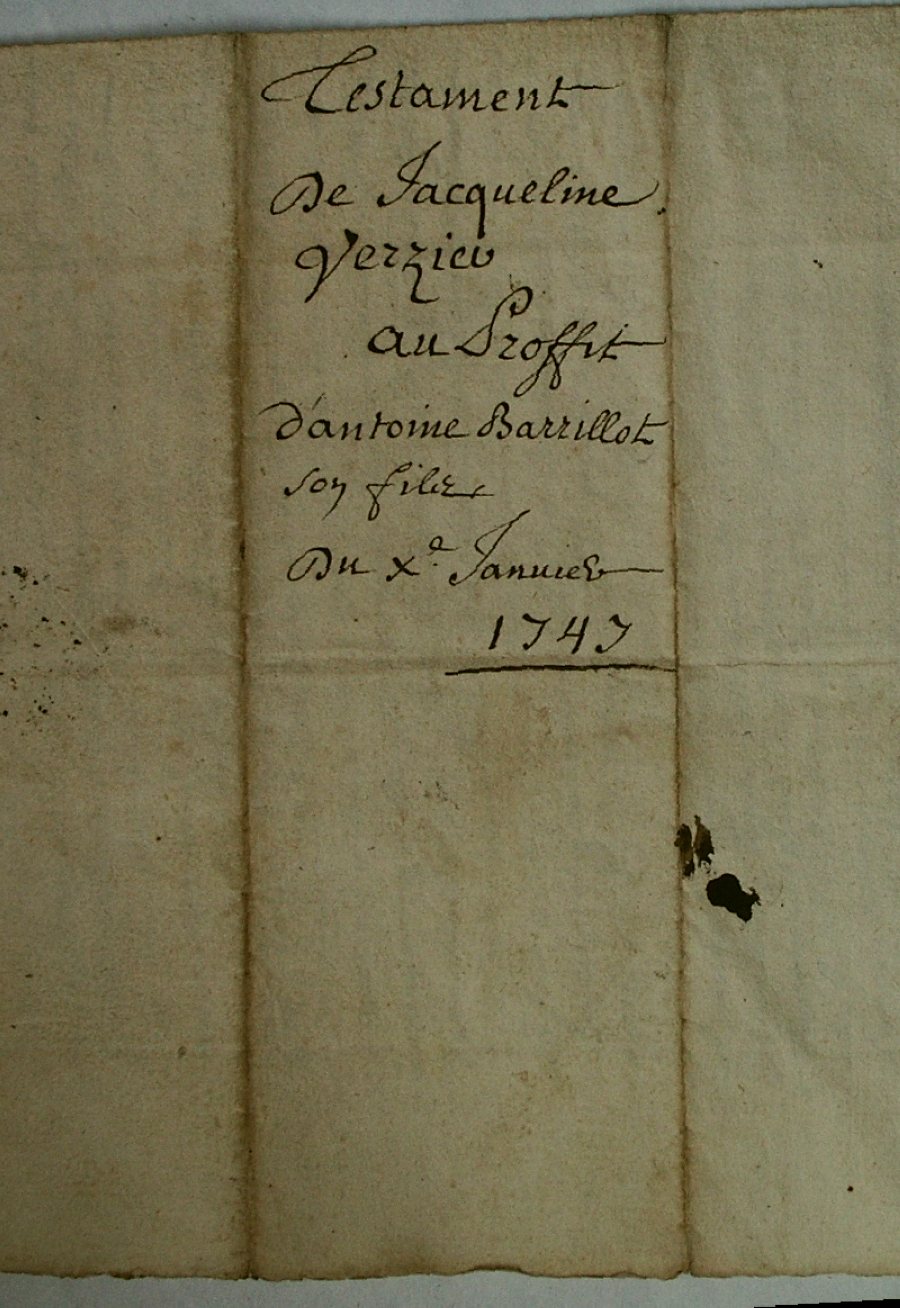 Testament
De Jacqueline
Verzier
au Proffit
d'antoine Barrillot
son filz
Du Xe. Januier
1747